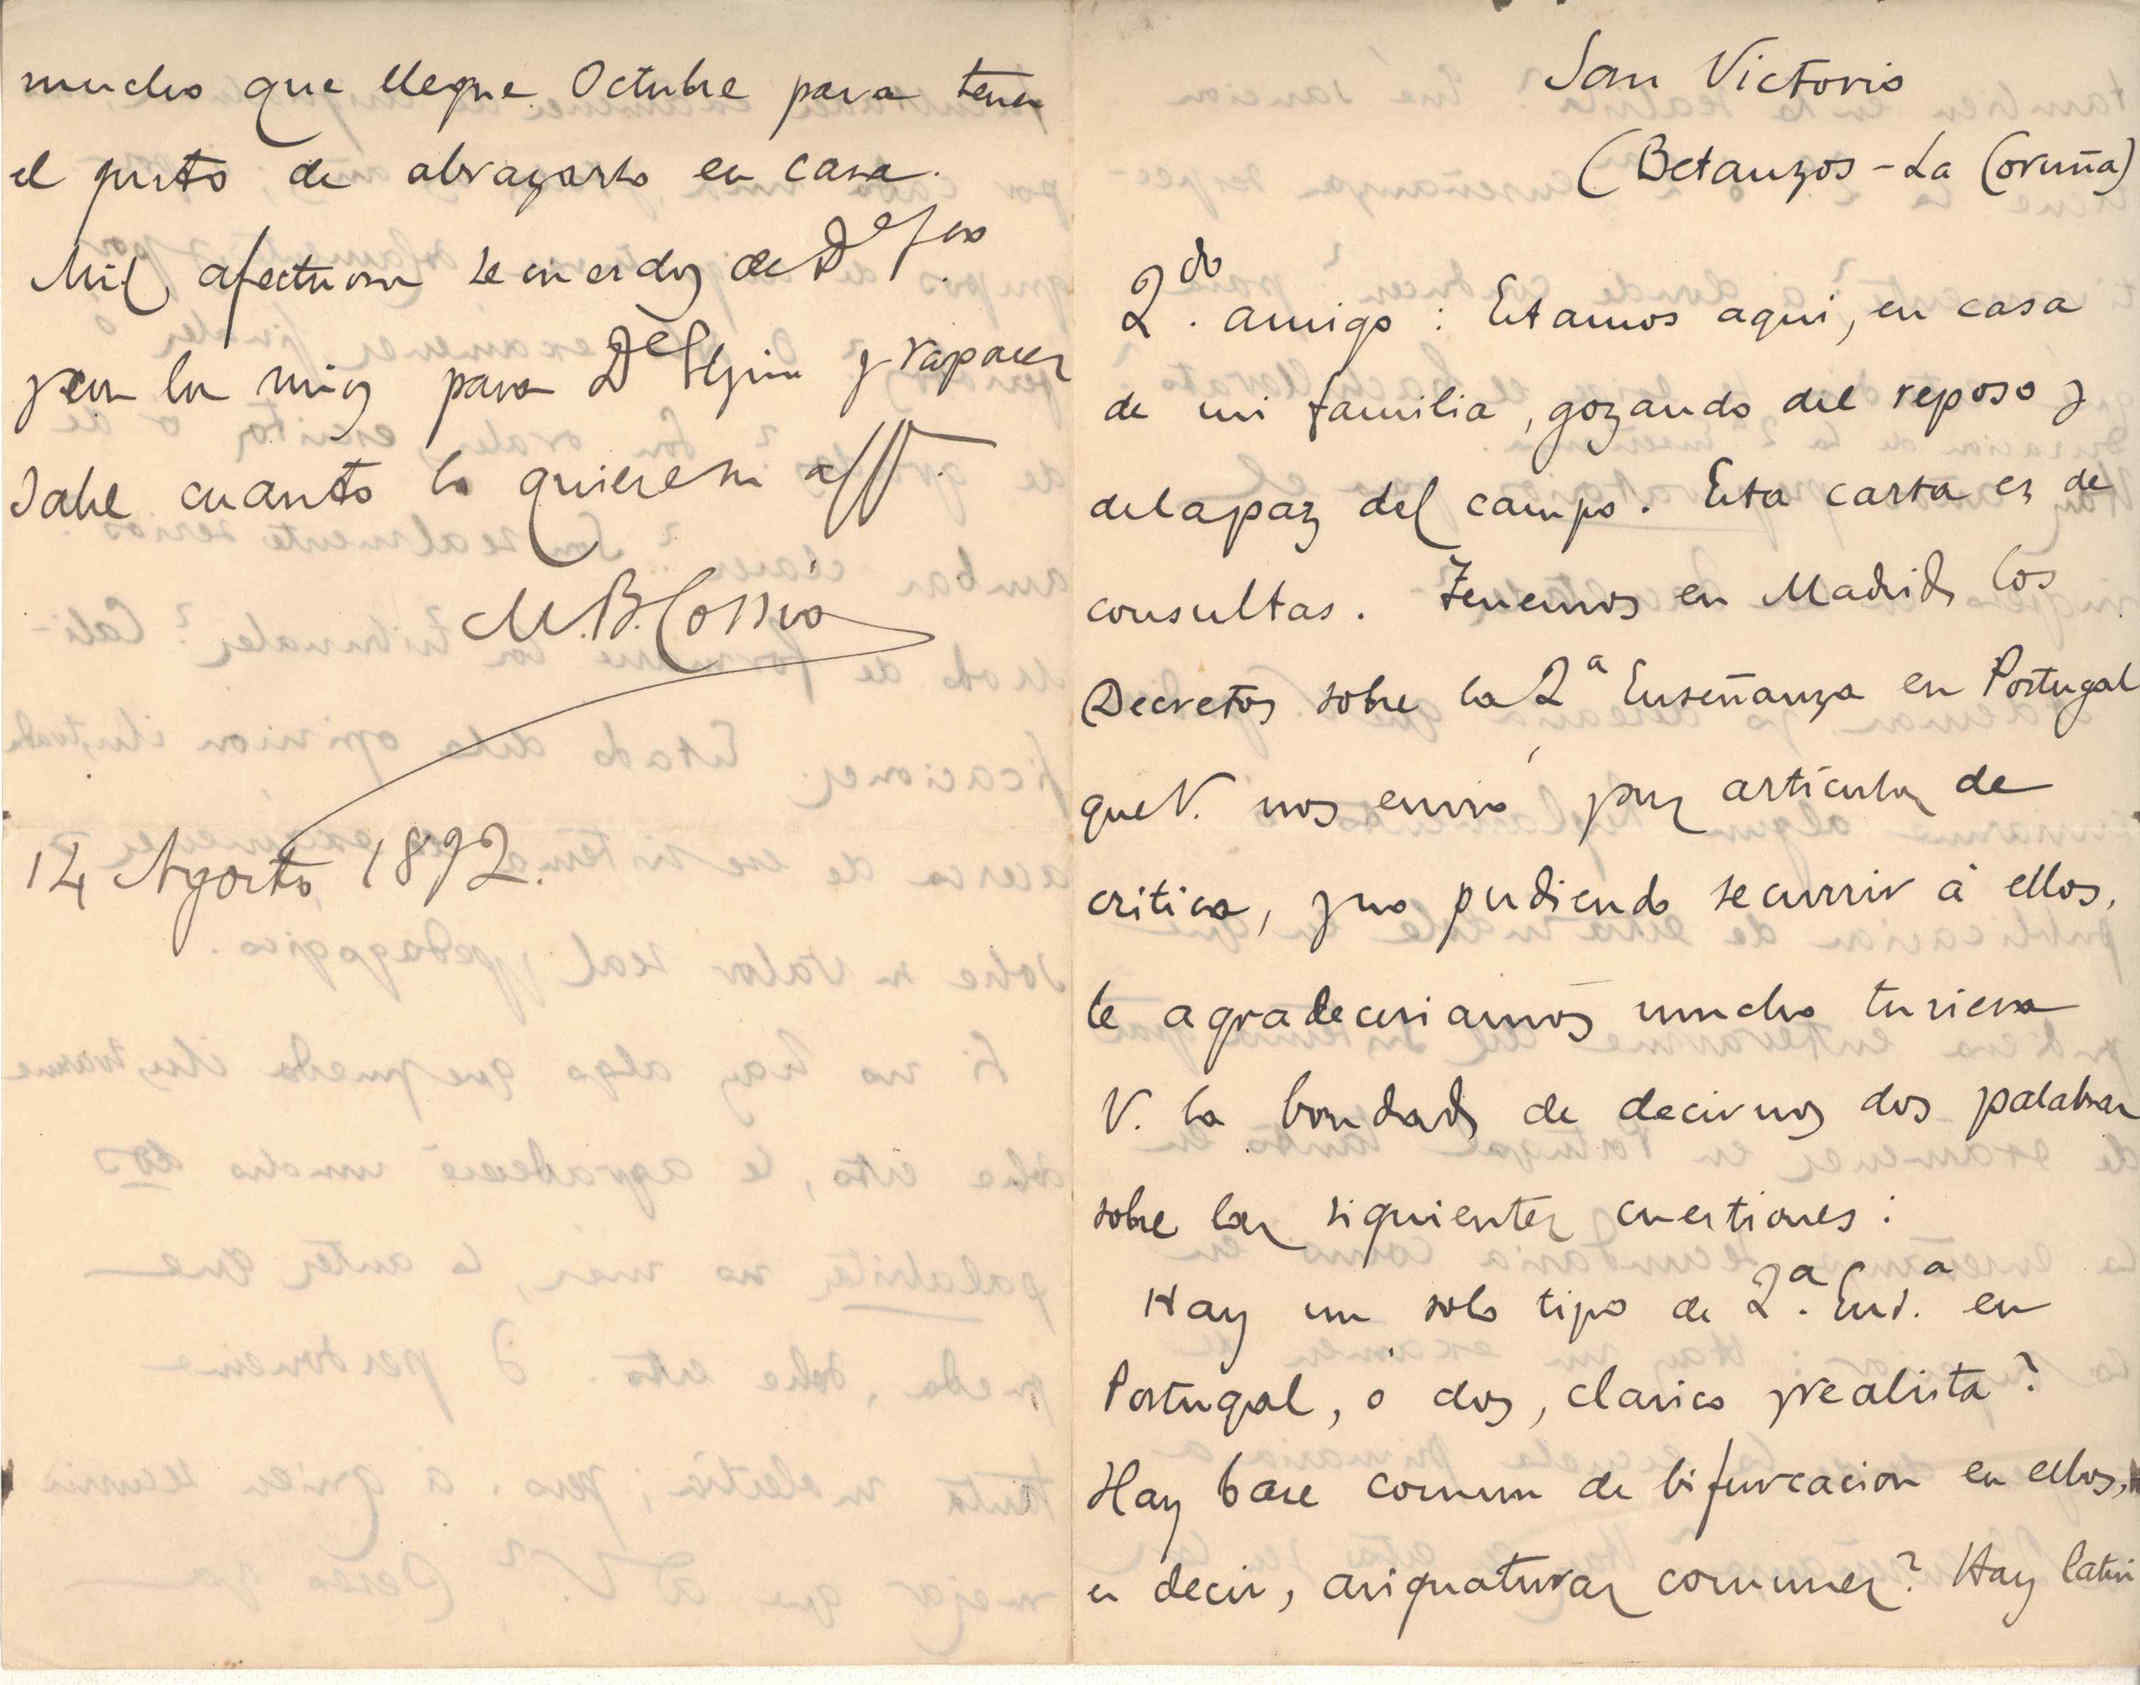 San Victorio
(Betanzos - La Coruña)
Qdo. amigo: Estamos aqui, en casa
de mi familia, gozando del reposo y
de la paz del campo. Esta carta es de
consultas. Tenemos en Madrid los
Decretos sobre la 2ª Enseñanza en Portugal
que V. nos envió y sus articulos de
critica, y no pudiendo recurrir á ellos,
le agradeceriamos mucho tuviera
V. la bondad de decirnos dos palabras
sobre las siguientes cuestiones:
Hay un solo tipo de 2ª. Ens.ª en
Portugal, o dos, clasico y realista?
Hay base comun de bifurcacion en ellos,
es decir, asignaturas comunes? Hay latin
mucho que llegue Octubre para tener
el gusto de abrazarlo en casa.
Mil afectuosos recuerdos de D.
y con los mios para Dª y rapaces
sabe cuanto lo quiere su afft.
M.B. Cossio
14 Agosto 1892.